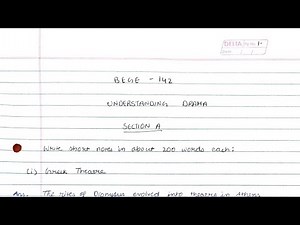 BEGE - 142
UNDERSTANDING DRAMA
SECTION A
Write short notes in about 200 words each:
(i) Greek Theatre
Ans. The rites of Dionysus evolved into theatre in Athens